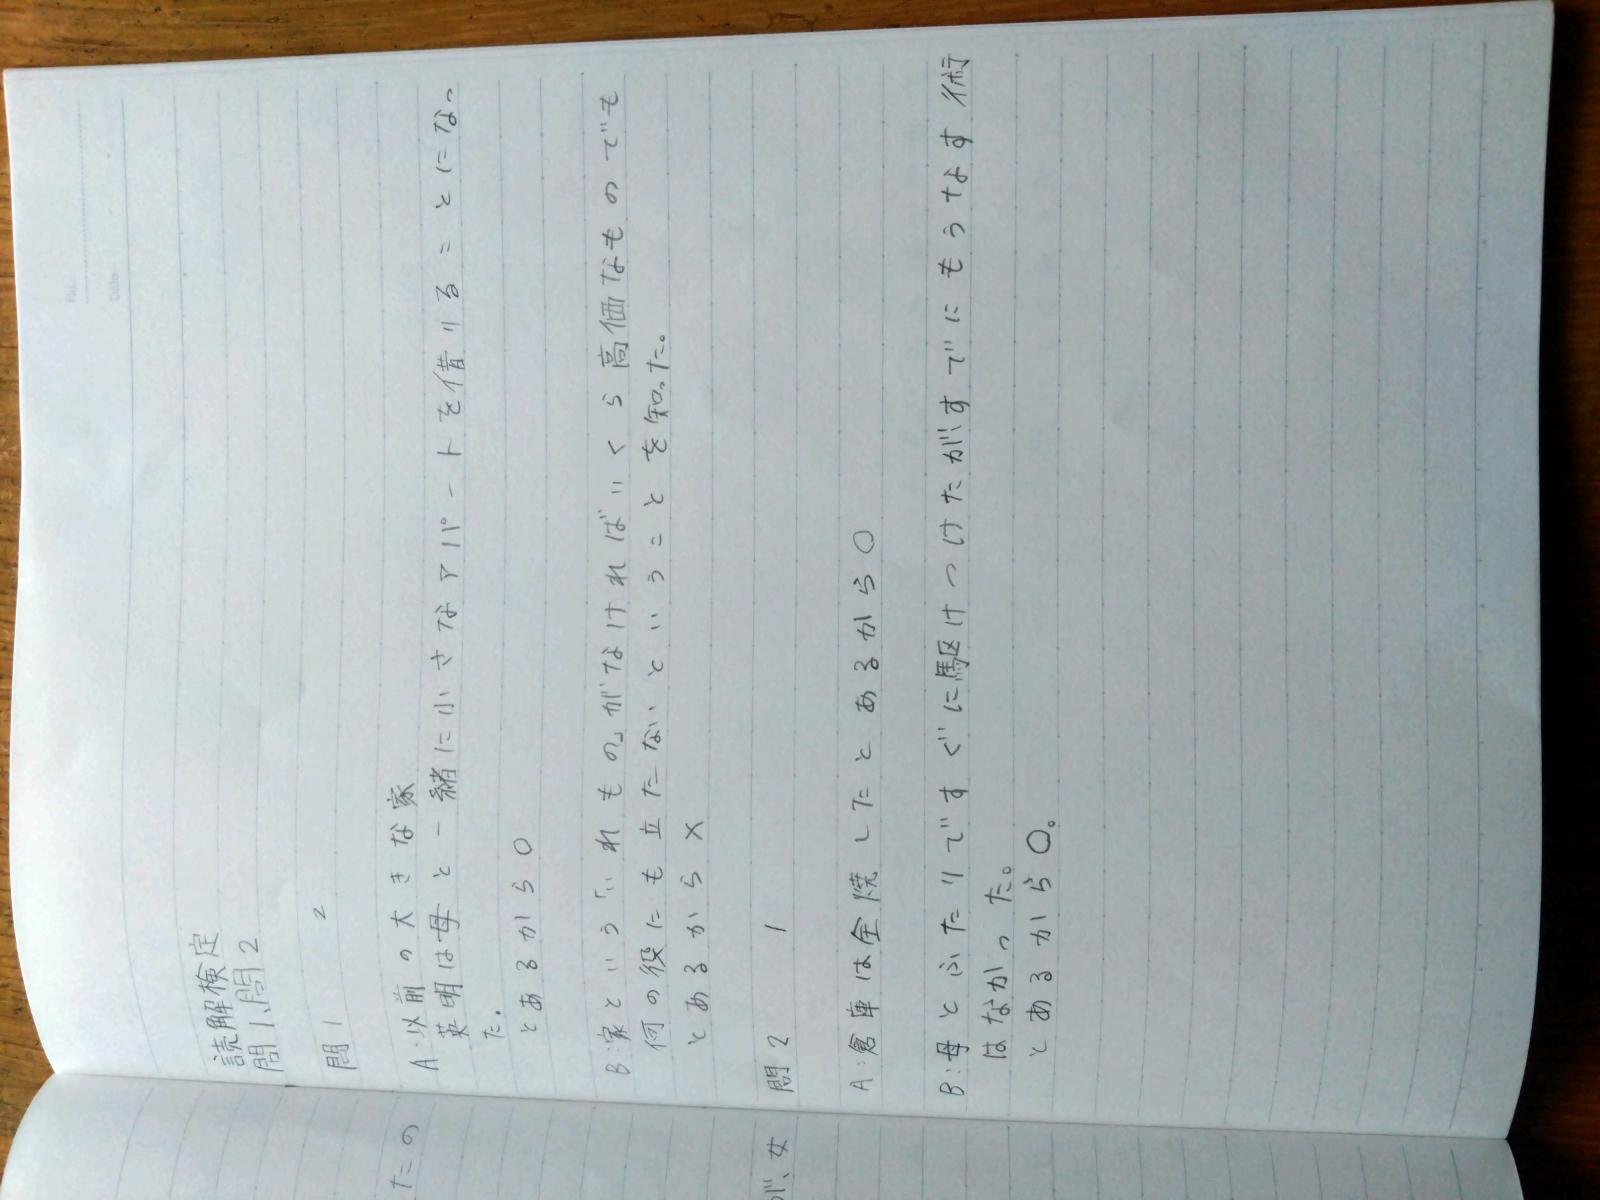 No.
Date
読解検定
問1、問2
問1 2
A:以前の大きな家
英明は母と一緒に小さなアパートを借りることになっ
た。
とあるから○
B:家という「いれもの」がなければいくら高価なものでも
何の役にも立たないということを知った。
とあるから×
問2 1
A:倉庫は全焼したとあるから○
B:母とふたりですぐに駆けつけたがすでにもうなす術
はなかった。
とあるから○。
たの
が、女